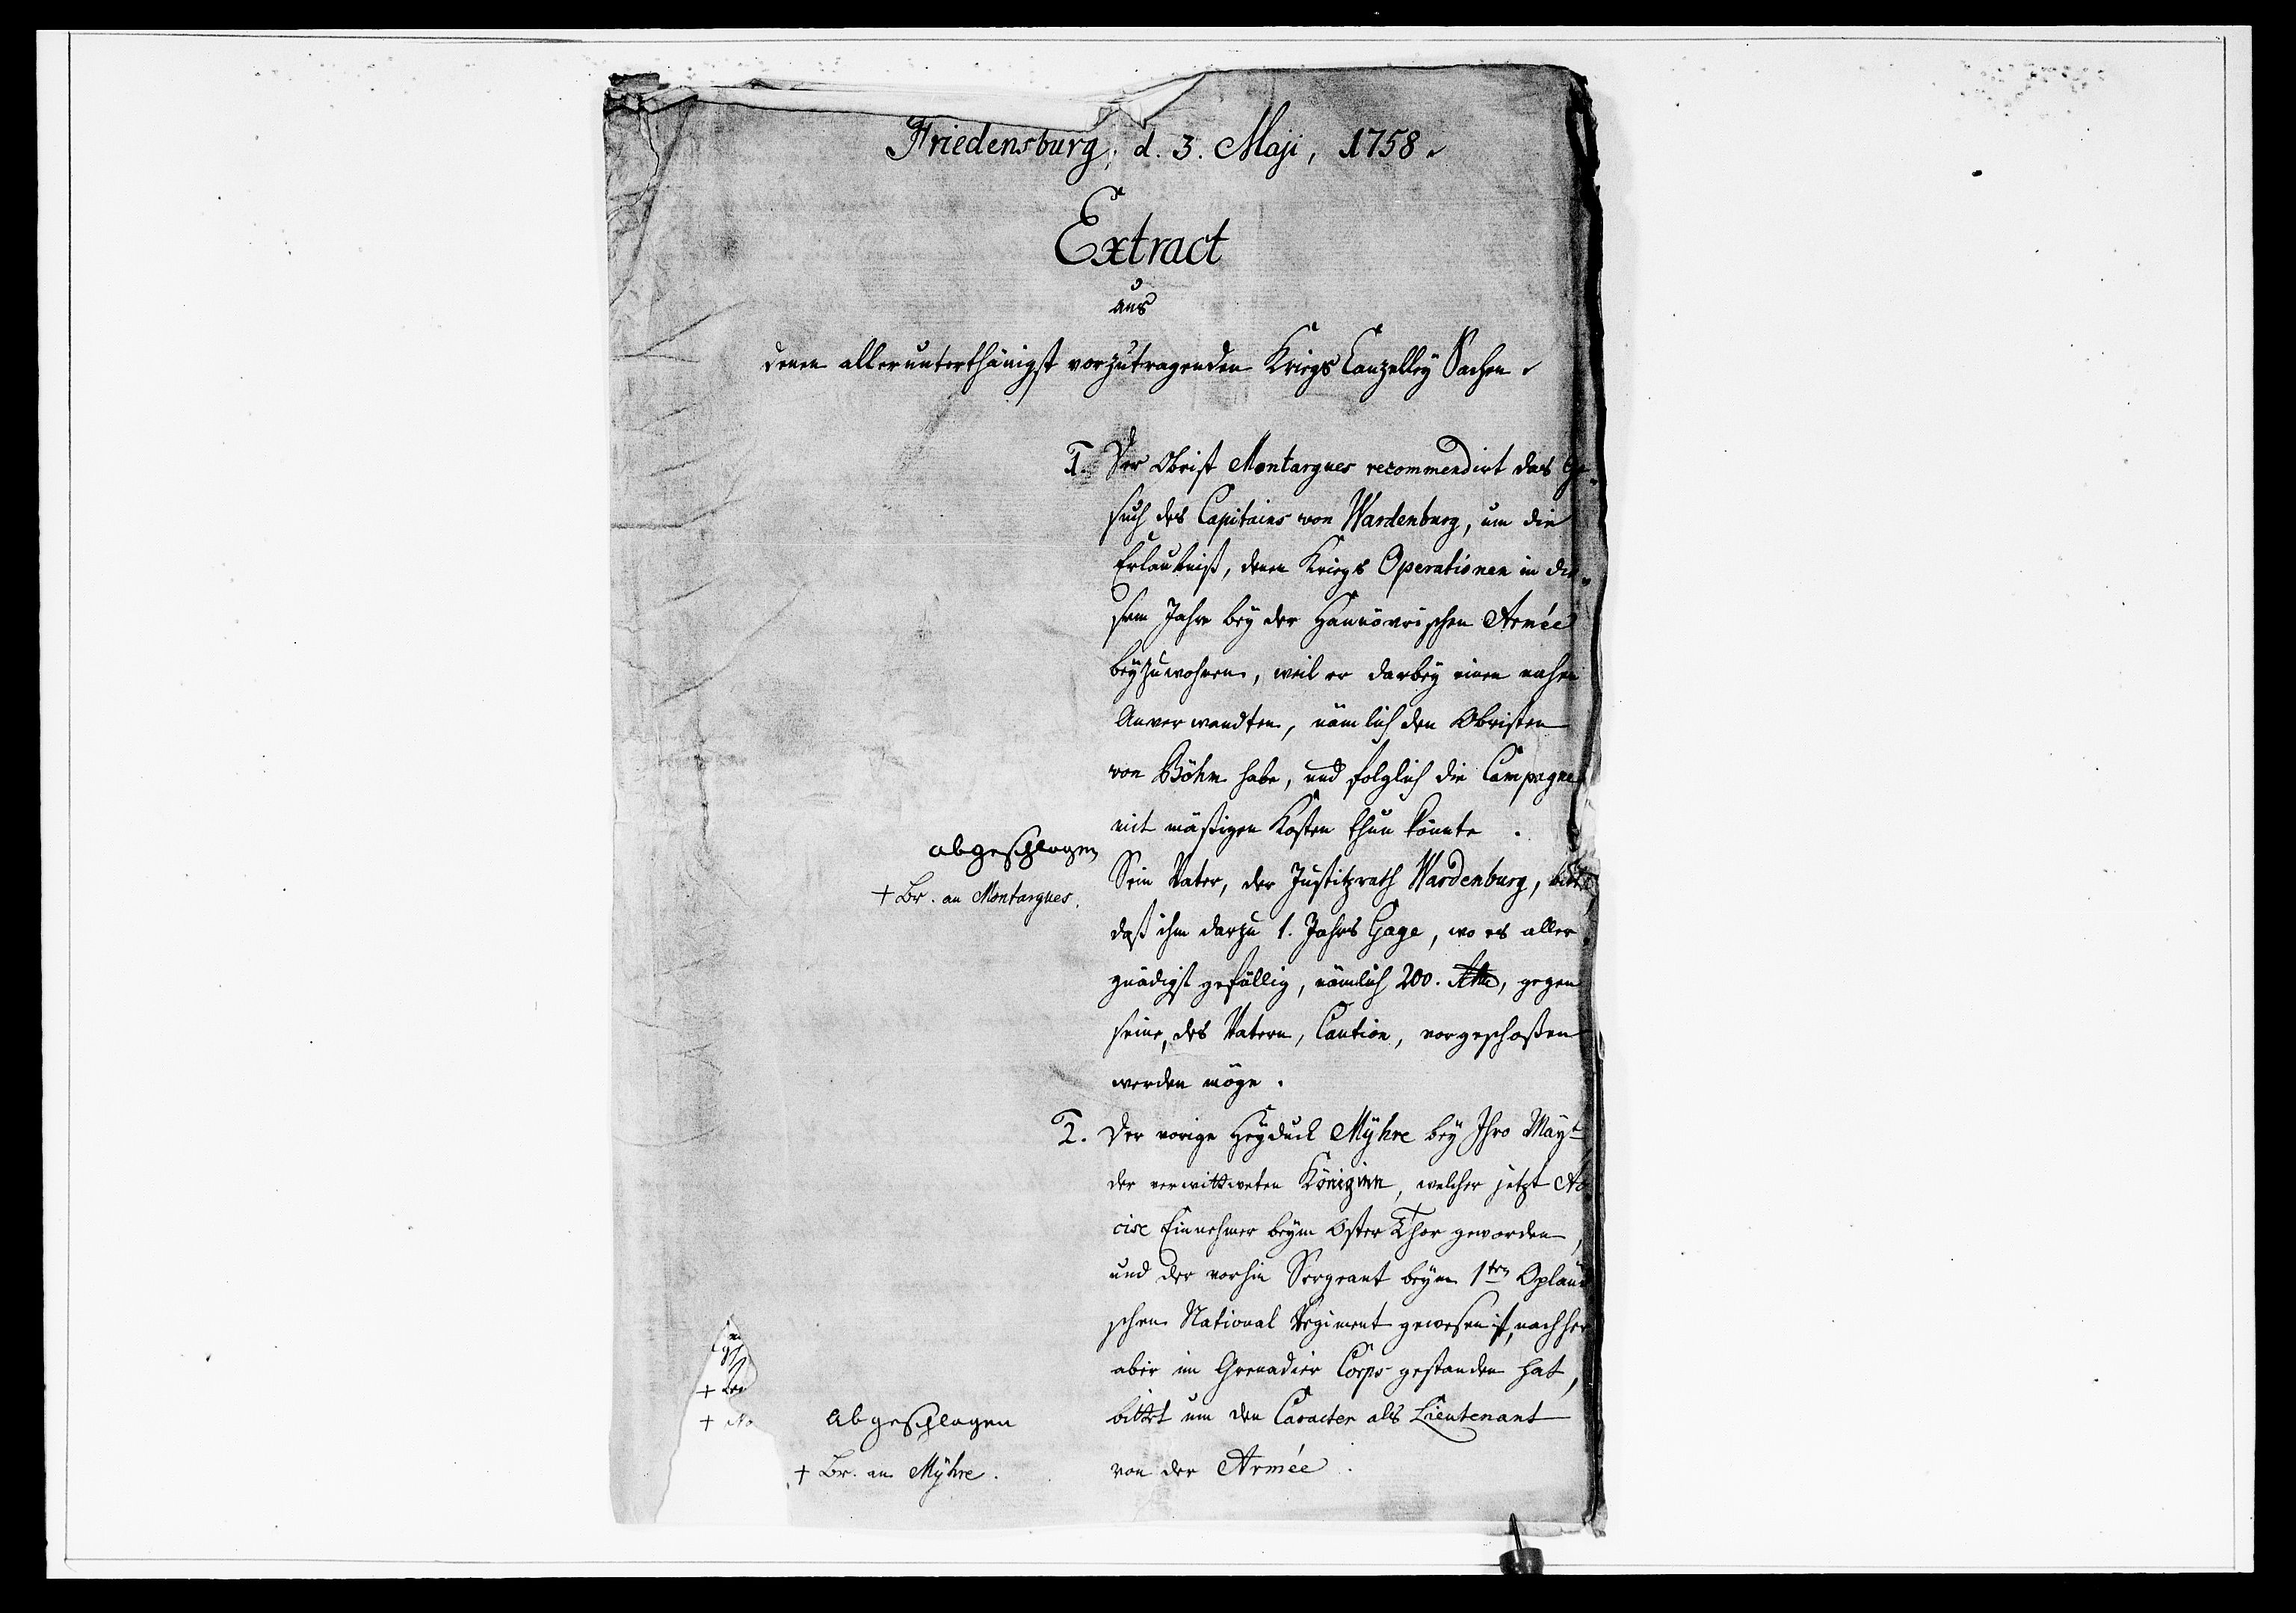 Friedensburg, d. 3. Maji, 1758.
Extract
aus
denen allerunterthänigst vorzutragenden Kriegs Canzelley Sachen.
1. Der Obrist Montargues recommendirt das Ge-
such des Capitains von Wardenburg, um die
Erlaubniß, denen Kriegs Operationen in die-
sem Jahre bey der Hannövrischen Armée
beyzuwohnen, weil er darbey einen nahen
Anverwandten, nämlich den Obristen
von Böhm habe, und folglich die Campagne
mit mäßigen Kosten thun könnte.
abgeschlagen
+ Br. an Montargues.
Sein Vater, der Justitzrath Wardenburg, bittet
daß ihm darzu 1. Jahrs Gage, wo es aller-
gnädigst gefällig, nämlich 200. Rthlr, gegen
seine, des Vatern, Caution, vorgeschoßen
werden möge.
2. Der vorige Heyduck Mÿhre bey Ihro Mayt
der verwittweten Königinn, welcher jetzt Ac-
cise Einnehmer beym Oster Thor geworden,
und der vorhin Sergeant beym 1ten Opländ
schen National Regiment gewesen ist, nachher
aber im Grenadier Corps gestanden hat,
bittet um den Caracter als Lieutenant
von der Armée.
Abgeschlagen
+ Br. an Mÿhre.